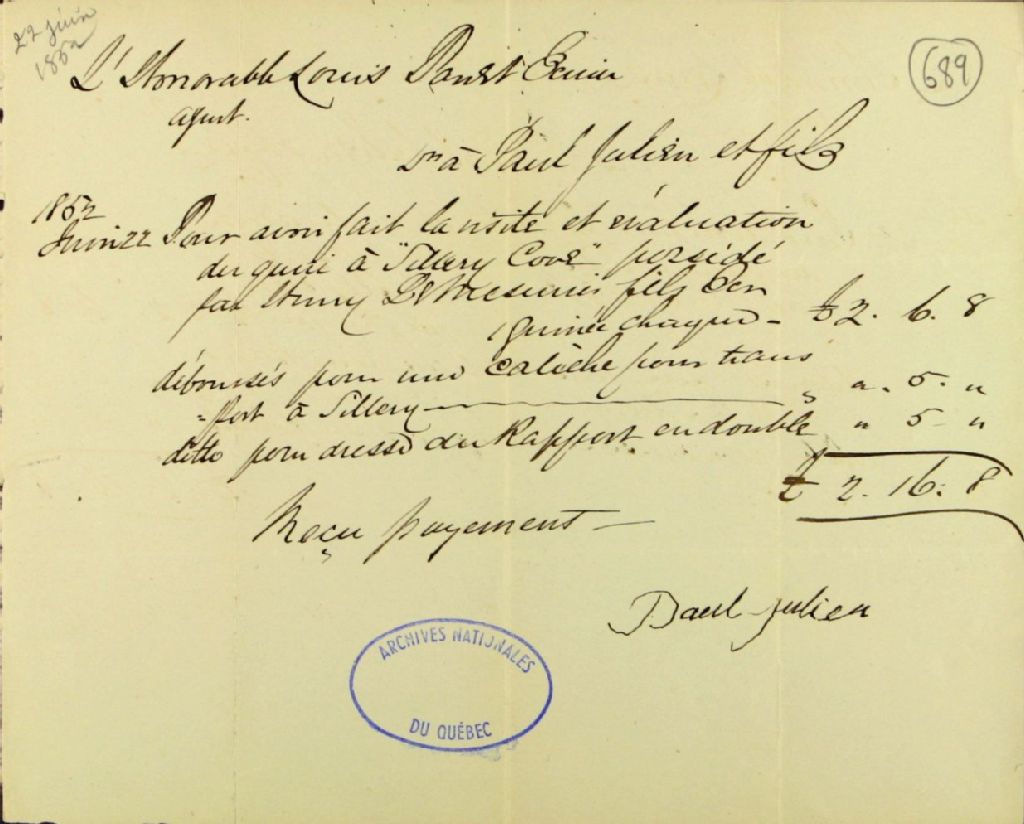 22 juin
1852
689
L'Honorable Louis Panet Ecuier
agent.
Dr à Paul Julien et fils
1852
Juin 22 Pour avoir fait la visite et évaluation
du quai à "Sillery Cove" possédé
par Henry LeMesurier fils
guinée chaque - £2. 6. 8
déboursés pour une calèche pour trans
-port à Sillery " ". 5. "
ditto pour dresse du Rapport en double " 5 - "
£ 2. 16. 8
Reçu payement -
Paul Julien
ARCHIVES NATIONALES
DU QUÉBEC